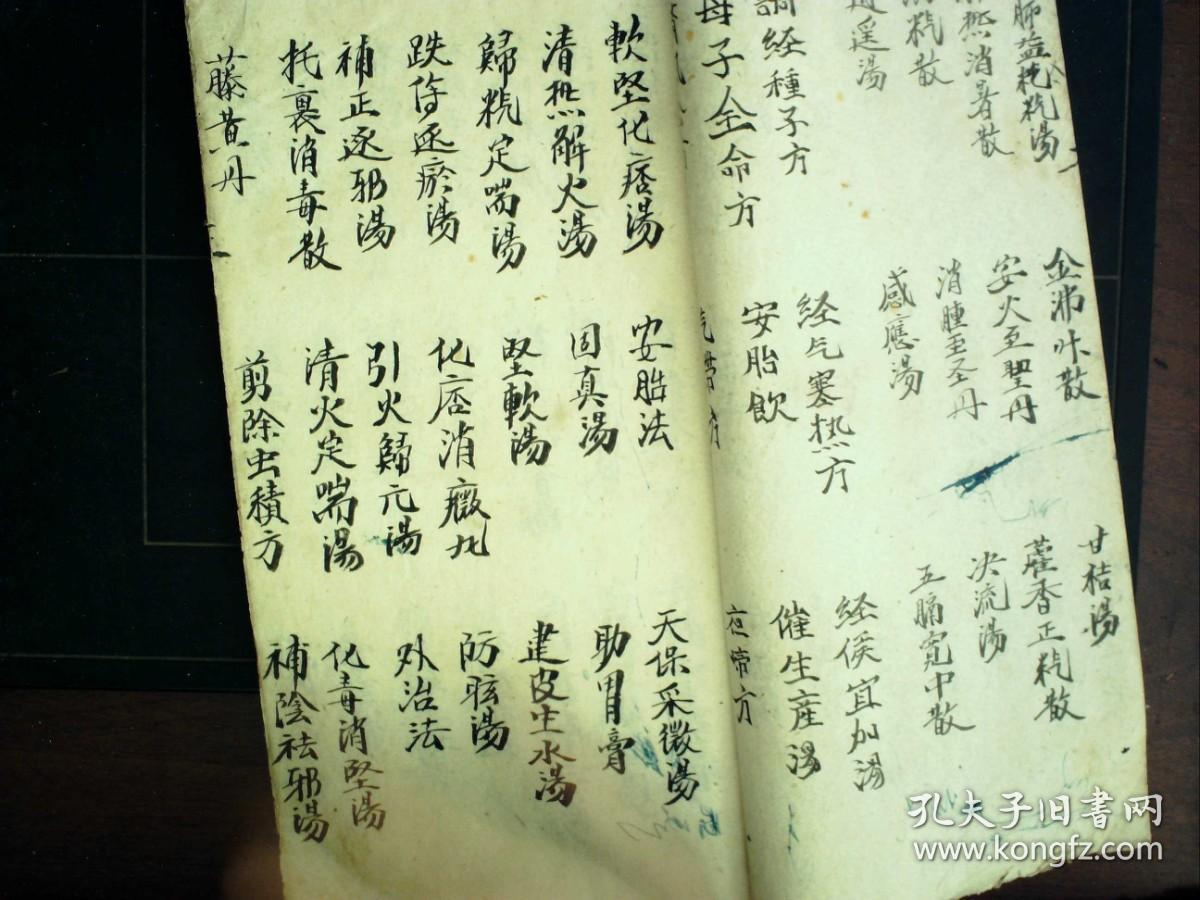 金沸咊散
甘桔湯
熱消暑散
安火至聖丹
藿香正䊠散
䊠散
消腫至圣丹
决流湯
逍遥湯
感應湯
五膈寬中散
調経種子方
経气寒热方
経侯宜加湯
母子全命方
安胎飲
催生產湯
夜啼方
軟堅化痞湯
安胎法
天保采微湯
清熱解火湯
固真湯
助胃膏
歸䊠定喘湯
堅軟湯
建皮生水湯
跌侤逐瘀湯
化痞消癥丸
防眩湯
補正逐邪湯
引火歸元湯
外治法
托裏消毒散
清火定喘湯
化毒消堅湯
藤黄丹
剪除虫積方
補陰祛邪湯
孔夫子旧书网
www.kongfz.com